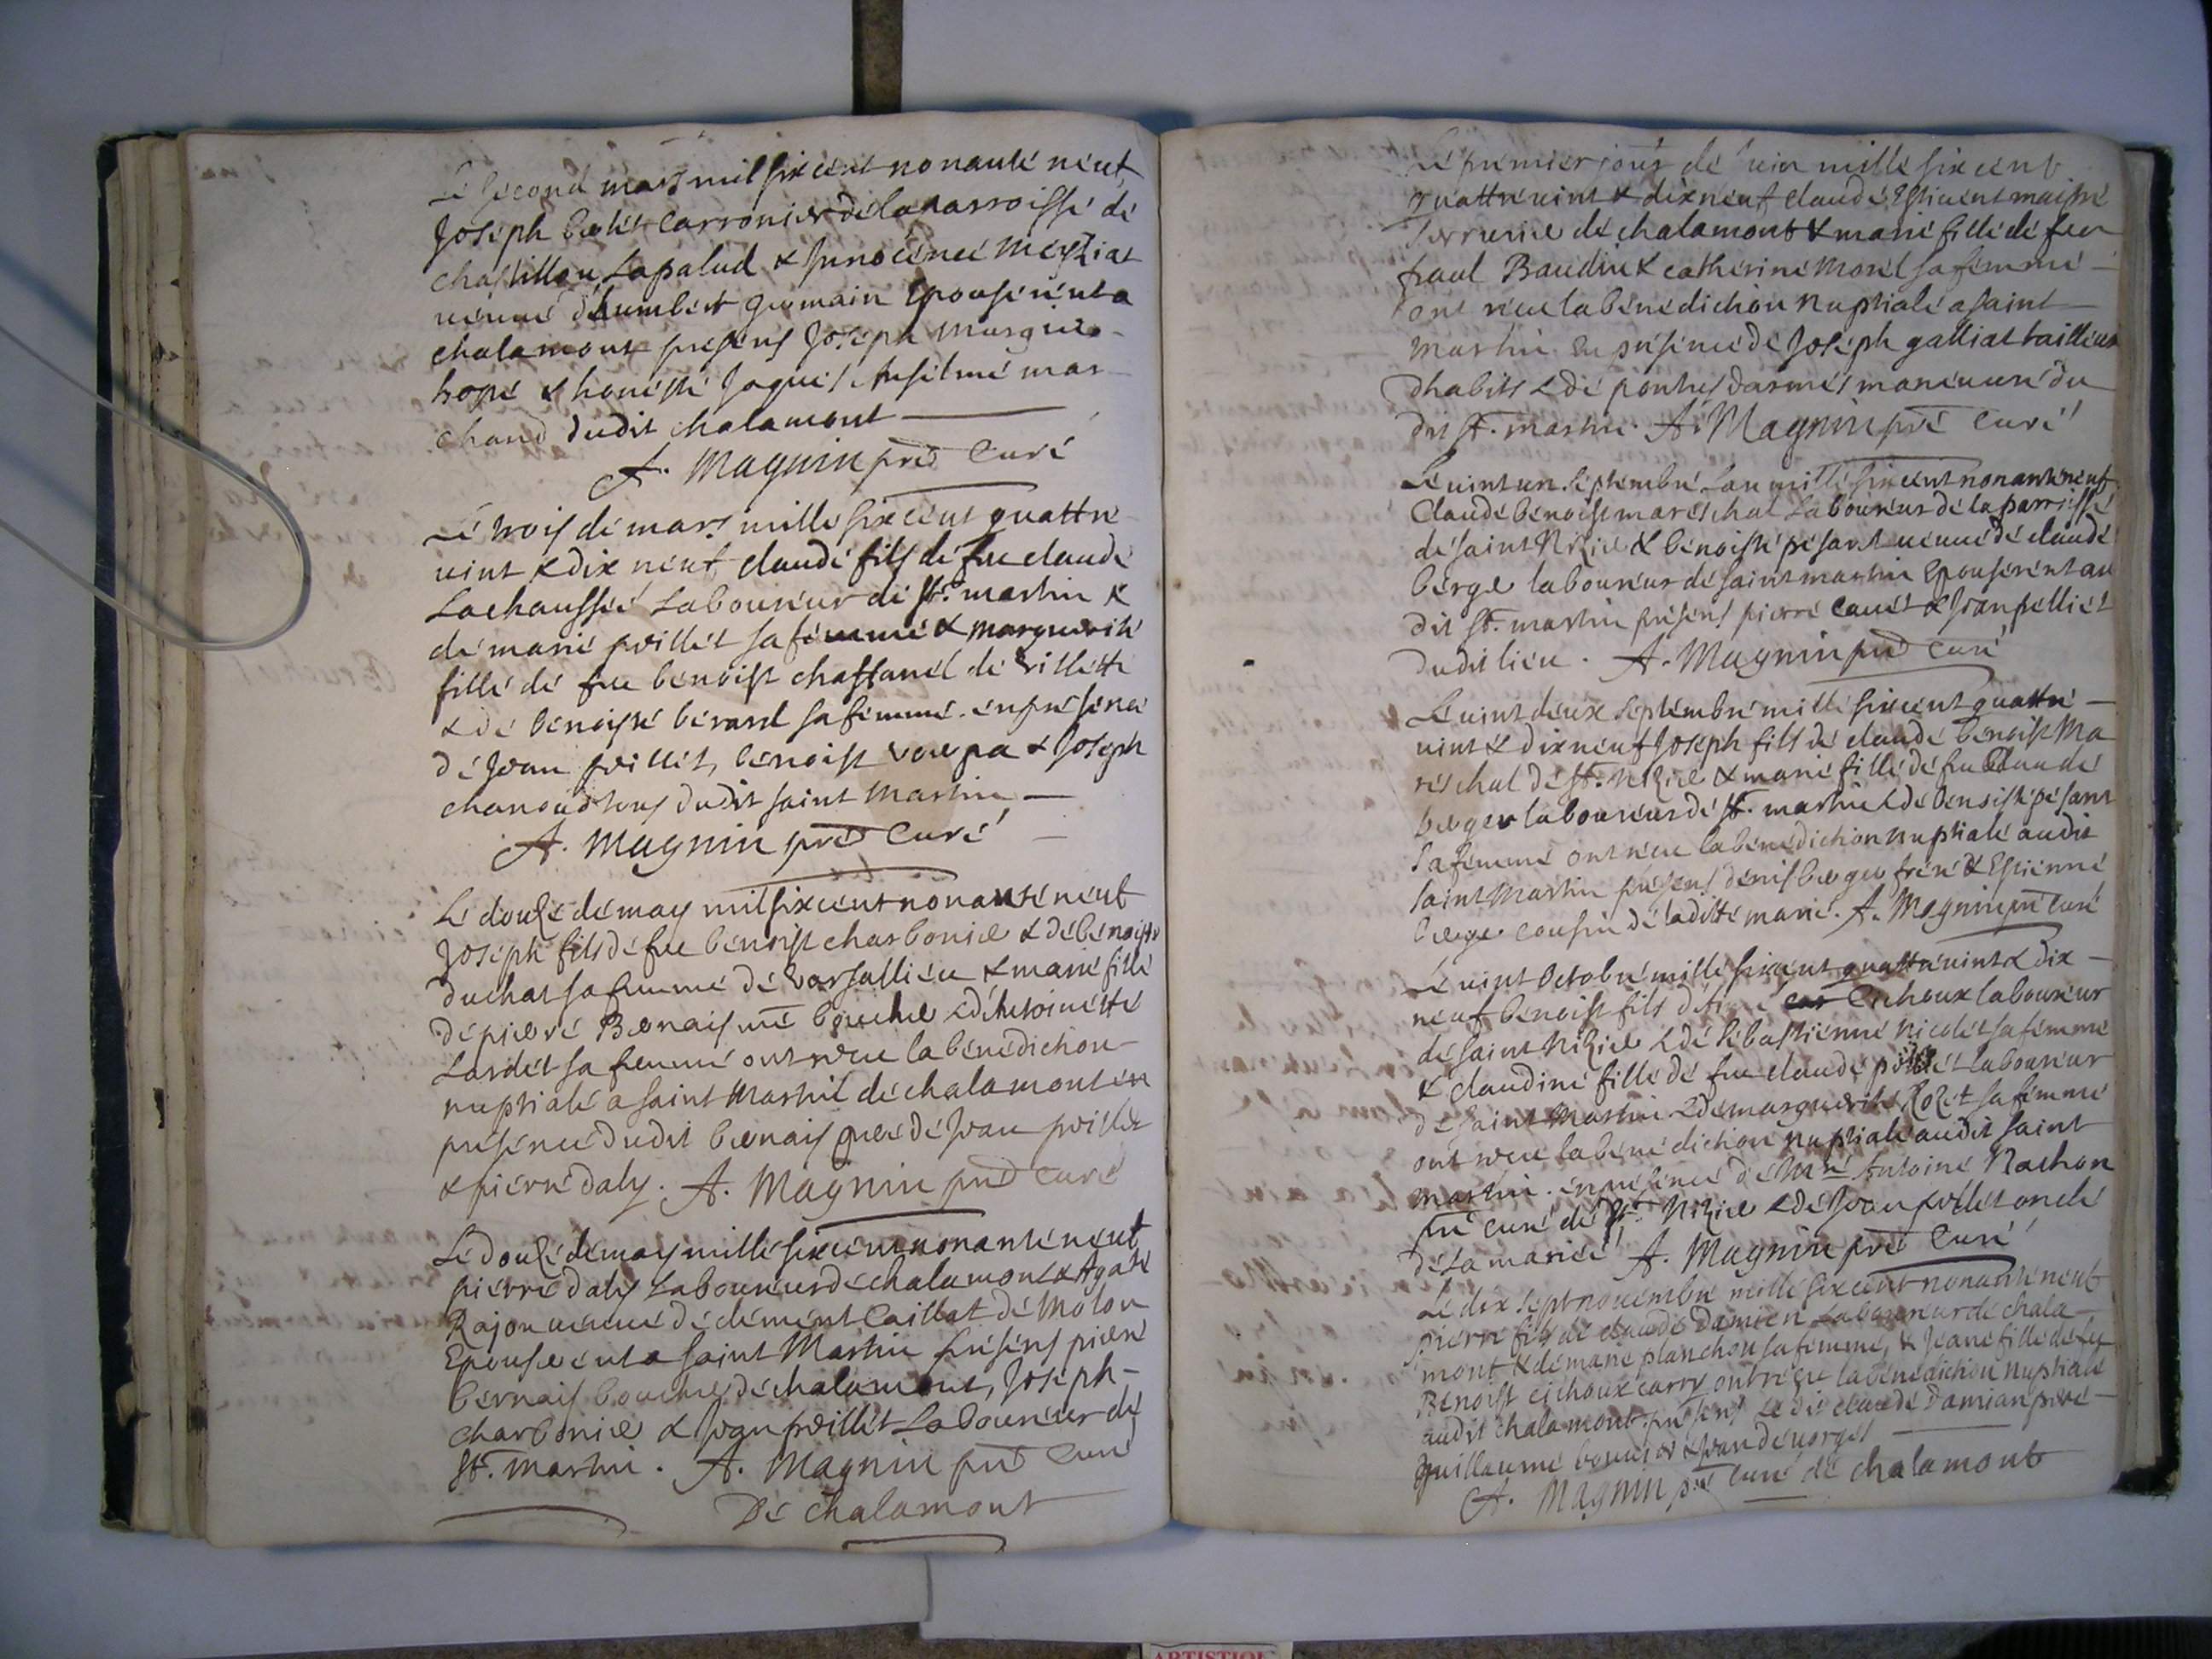 Le second mars mil six cent nonante neuf
Joseph carronier de la parroisse de
chastillon Lapalud & Innocence
veuve d'humbert germain Epouserent a
chalamont presens Joseph
& honeste Jaques Anselme mar
chand dudit chalamont
A. Magnin pre Curé
Le trois de mars mille six cent quattre
vint & dix neuf claude fils de feu claude
Lachaussee Laboureur de St. martin &
de marie poillet sa femme & marguerite
fille de feu benoist chastanel de villette
& de benoiste berard sa femme. en presence
de Jean poillet, benoist & Joseph
tous dudit saint Martin
A. Magnin pre Curé
Le douze de may mil six cent nonante neuf
Joseph fils de feu benoist charbonier & de benoiste
duchat sa femme de & marie fille
de pierre Bernais me boucher & d'Antoinette
Lardet sa femme ont receu la benediction
nuptiale a saint Martin de chalamont en
presence dudit bernais de Jean poillet
& pierre daly. A. Magnin pre Curé
Le douze de may mille six cent nonante neuf
pierre daly Laboureur de chalamont & Agate
Rajon veuve de clement Caillat de Molon
Epouserent a saint Martin presens pierre
bernais boucher de chalamont, Joseph
charbonier & Jean poillet Laboureur de
St. martin. A. Magnin pre Curé
De chalamont
Le premier jour de iuin mille six cent
quattre vint & dix neuf claude maistre
serrurier de chalamont & marie fille de feu
paul Baudin & catherine Morel sa femme
ont receu la benediction nuptiale a saint
Martin en presence de Joseph galliat tailleur
dhabits & de ponthus darmes du
dit St. martin. A. Magnin pre Curé
Le vint un septembre Lan mille six cent nonante neuf
Claude benoist mareschal Laboureur de la parroisse
de saint Nizier & benoiste pesant veuve de claude
berger laboureur de saint martin Epouserent au
dit St. martin presens pierre canet & Jean pelliet
dudit lieu. A. Magnin pre Curé
Le vint deux septembre mille six cent quattre
vint & dix neuf Joseph fils de claude benoist Ma
reschal de St. Nizier & marie fille de feu Claude
berger laboureur de St. martin & de benoiste pesant
sa femme ont receu la benediction nuptiale audit
saint Martin presens denis berger frere & Estienne
berger cousin de laditte marie. A. Magnin pre Curé
Le vint Octobre mille six cent quattre vint & dix
neuf benoist fils de Cichoux laboureur
de saint Nizier & de sebastienne nicolet sa femme
& claudine fille de feu claude poillet laboureur
de saint Martin & de marguerite Rozet sa femme
ont receu la benediction nuptiale audit saint
martin. en presence de Mre Antoine Nachon
pre curé de St. Nizier & de Jean poillet oncle
de la mariee A. Magnin pre Curé
Le dix sept novembre mille six cent nonante neuf
pierre fils de claude Damien Laboureur de chala
mont & de marie planchon sa femme, & Jeane fille de feu
Benoist cichoux ont receu la benediction nuptiale
audit chalamont. presens Le dit claude Damian pere
guillaume bouvier & Jean devorges
A. Magnin pre Curé de chalamont